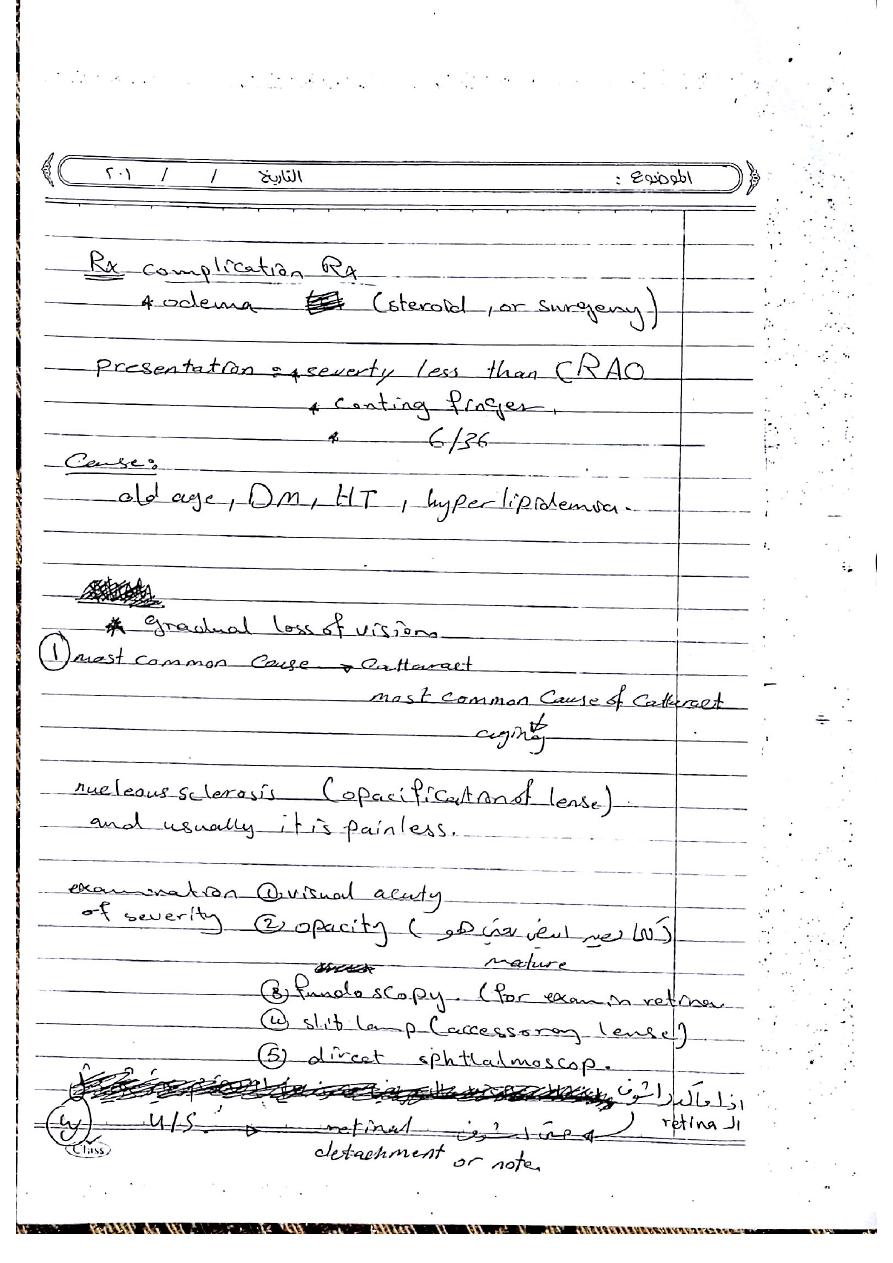 الموضوع : التاريخ / / ٢٠١
Rx complication Rx
* odema (steroid, or surgery)
presentation : * severty less than CRAO
* conting finger,
* 6/36
Cause:
old age, DM, HT, hyperlipidemia.
* Gradual loss of vision
① most common cause → Cattaract
most common Cause of Cattaract
↓
aging
nucleous sclerosis (opacification of lense)
and usually it is painless.
examination ① visual acuty
of severity ② opacity (كلما يصير ابيض يعني هو
mature
③ fundoscopy. (for exam in retinea
④ slit lamp (accessoray lense)
⑤ direct ophthalmoscop.
اذا ماگدر اشوف
الـ retina
U/S. → retinal حتى اشوف
detachment or note.
Class